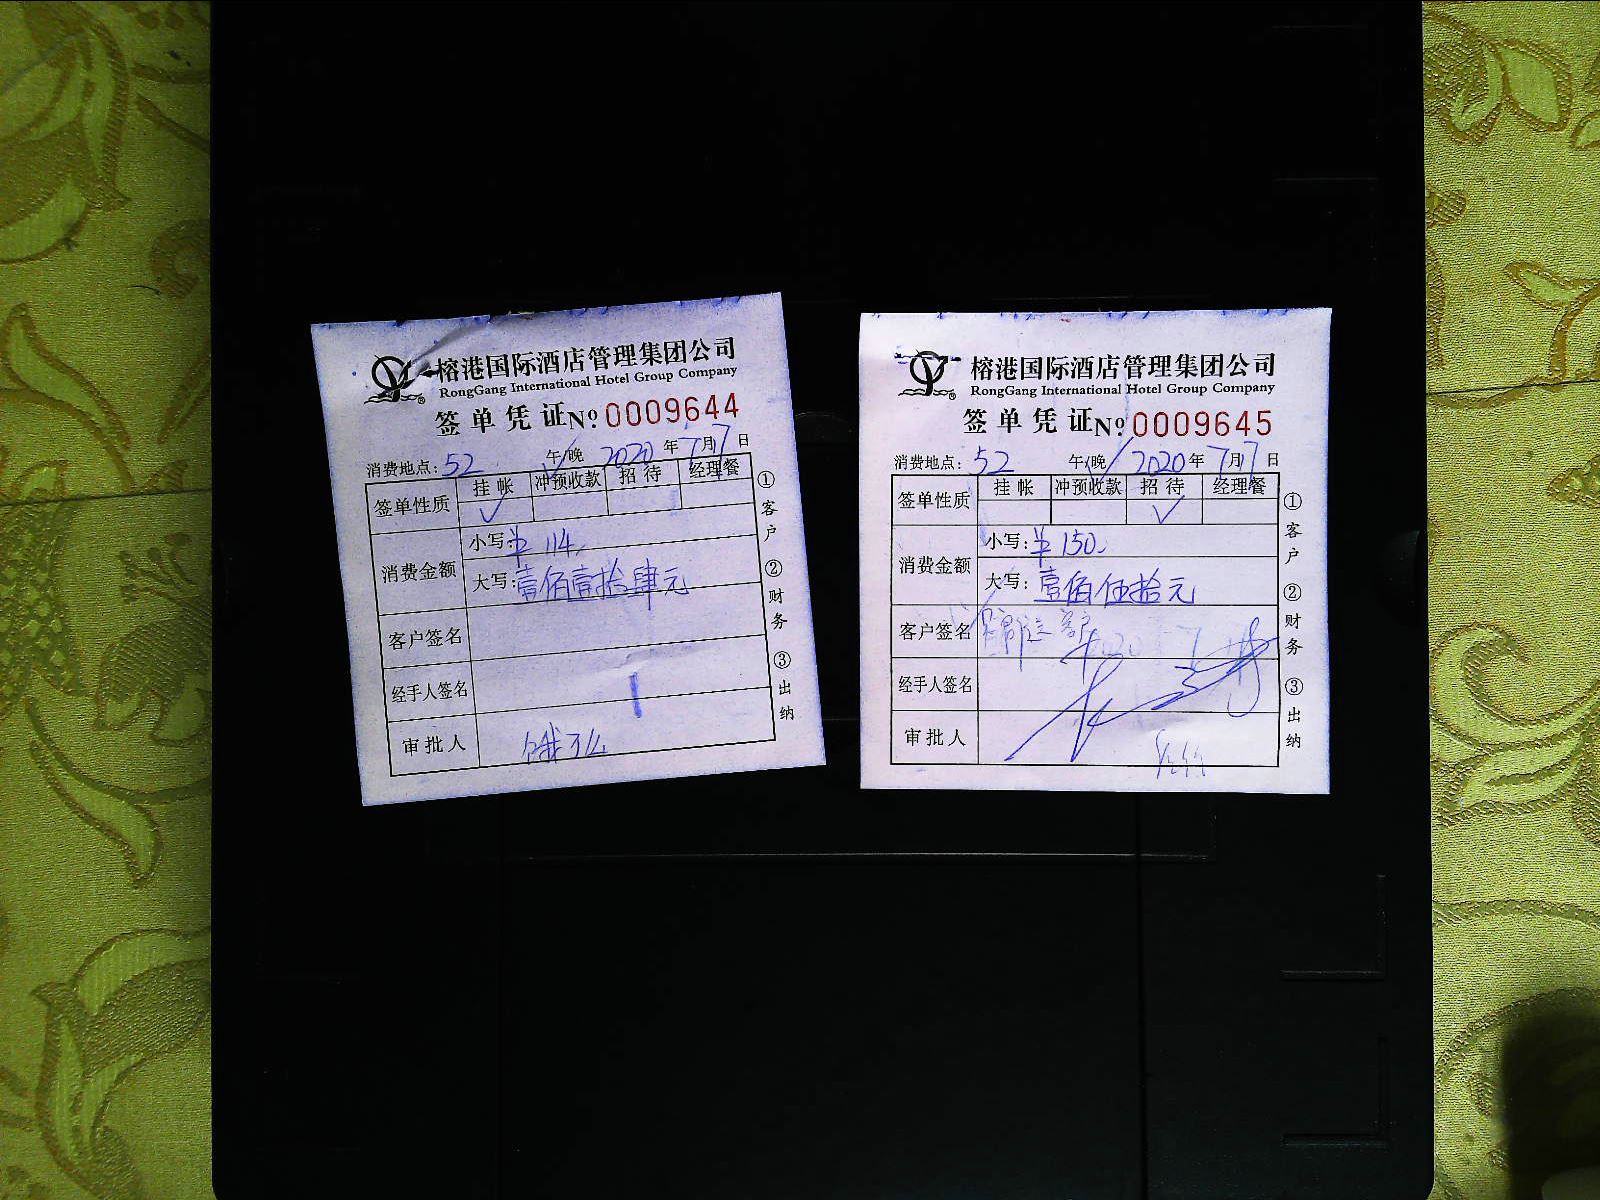 榕港国际酒店管理集团公司
RongGang International Hotel Group Company
签单凭证 No. 0009644
消费地点: 52 午/晚 2020年7月7日
签单性质 挂帐 冲预收款 招待 经理餐
✓
消费金额 小写: ¥ 114.
大写: 壹佰壹拾肆元
客户签名
经手人签名
审批人
①客户 ②财务 ③出纳
榕港国际酒店管理集团公司
RongGang International Hotel Group Company
签单凭证 No. 0009645
消费地点: 52 午/晚 2020年7月7日
签单性质 挂帐 冲预收款 招待 经理餐
✓
消费金额 小写: ¥ 150.
大写: 壹佰伍拾元
客户签名
经手人签名
审批人
①客户 ②财务 ③出纳